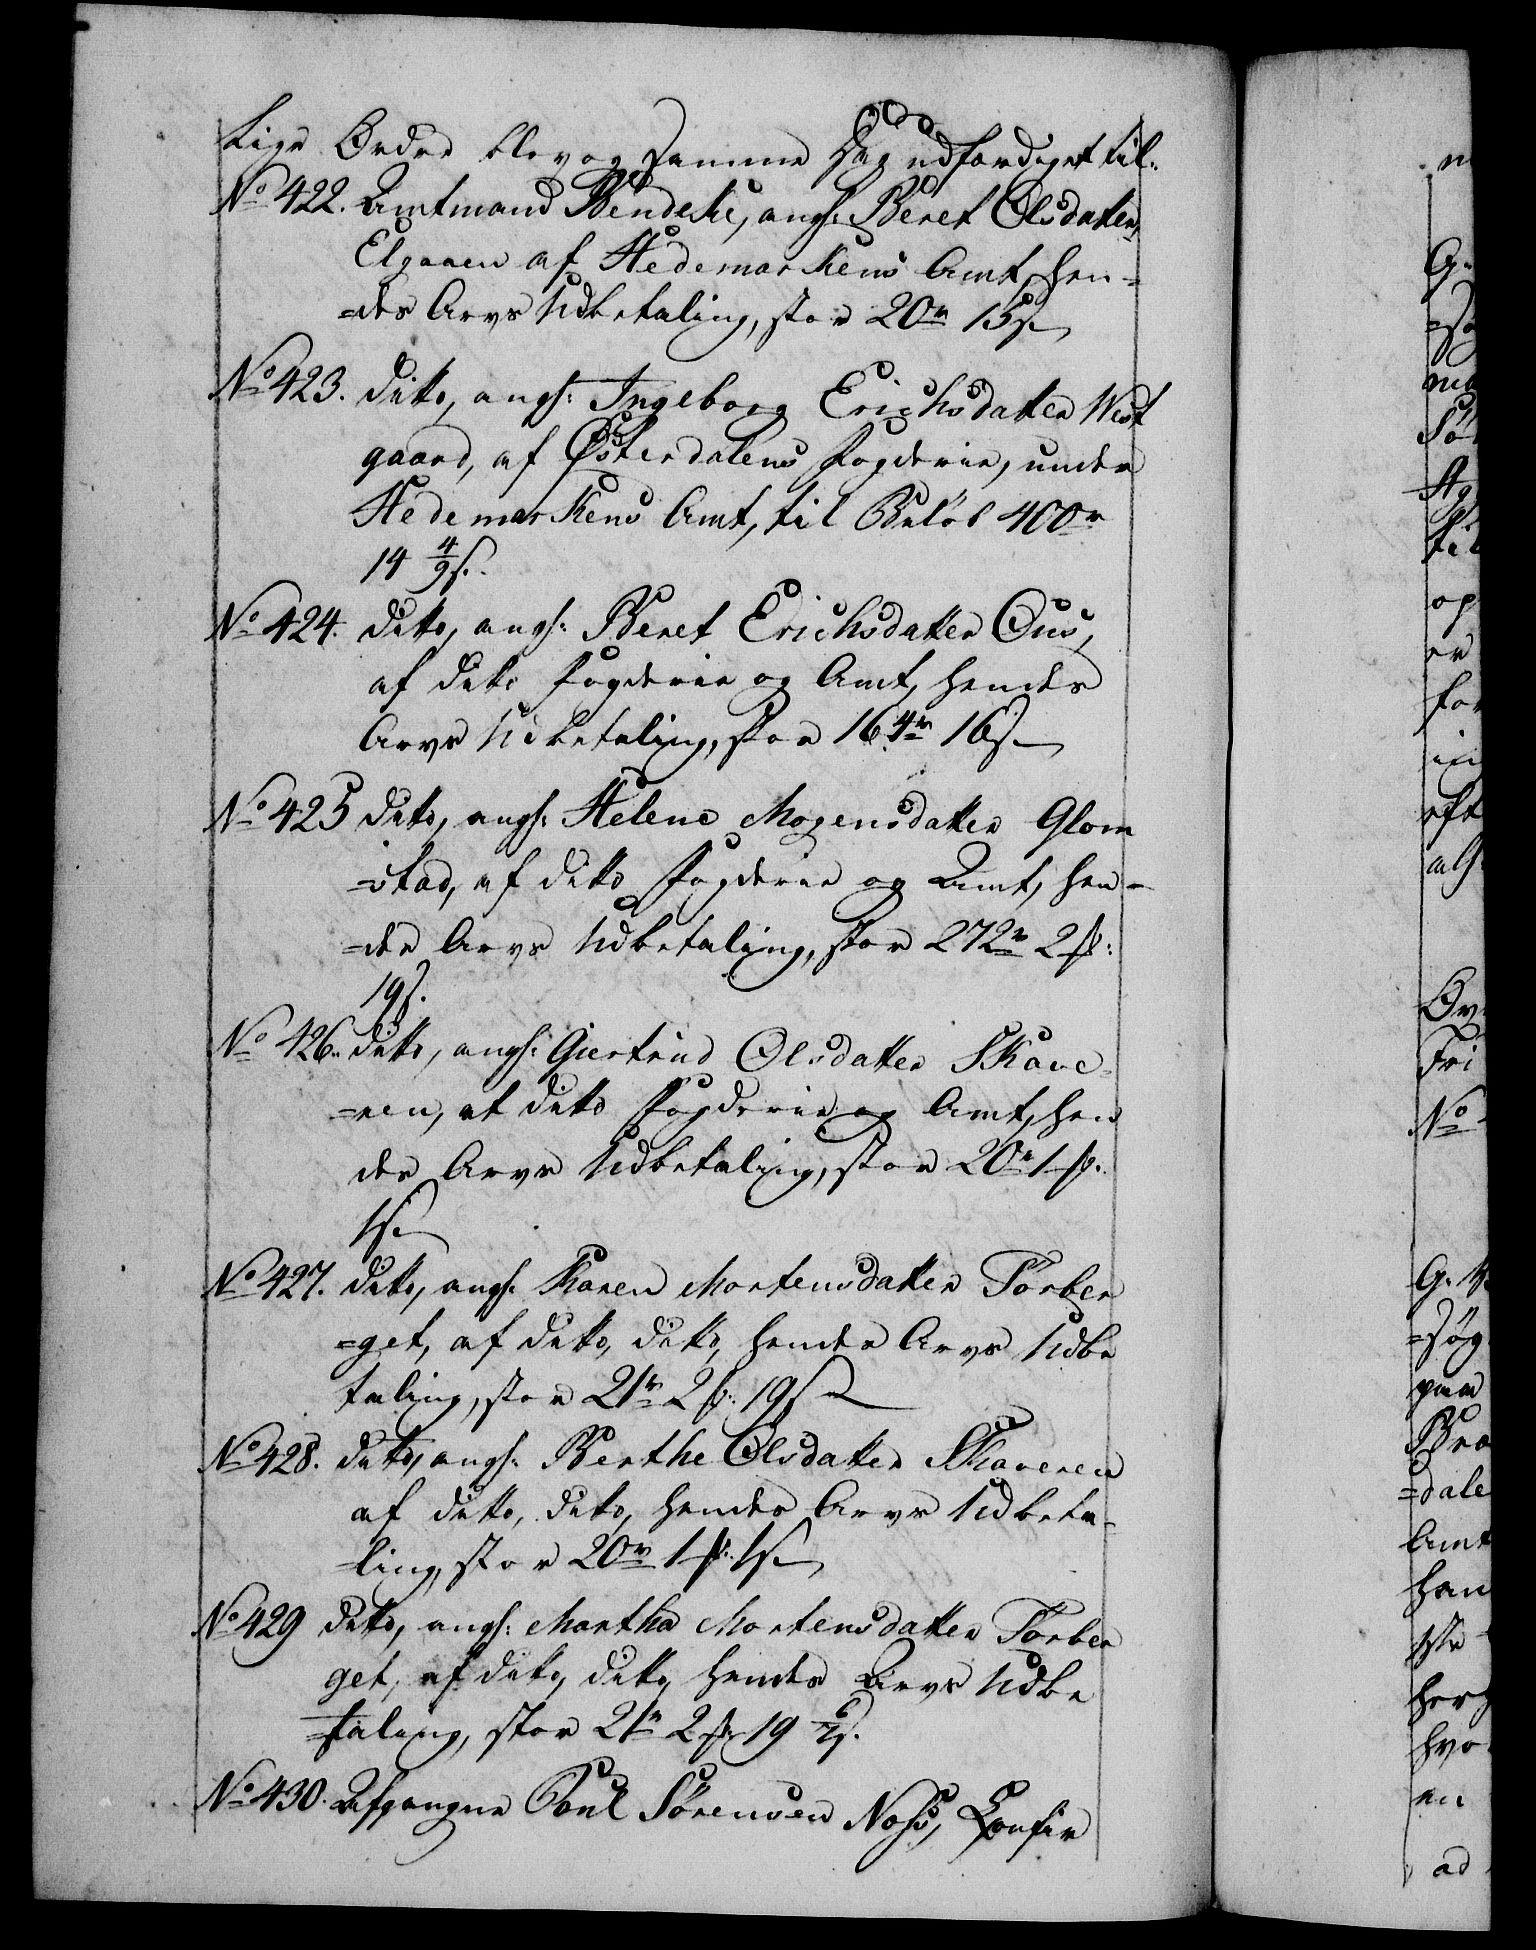 Lige Ordre blev og samme Dag udfærdiget til:
No 422. Amtmand Bendeke, angl: Beret Olsdatter
Elgaaen af Hedemarkens Amt, hen=
=des Arvs Udbetaling, stor 20r 15s
No 423. Ditto, angl: Ingeborg Erichsdatter West
gaard, af Østerdalens Fogderie, under
Hedemarkens Amt, til Beløb 400r
14 4/9 s.
No 424. Ditto, angl: Beret Erichsdatter Ous,
af ditto Fogderie og Amt, hendes
Arvs Udbetaling, stor 16 4m 16s
No 425 Ditto, angl: Helene Mogensdatter Glom
=stad, af ditto Fogderie og Amt, hen=
=des Arvs Udbetaling, stor 272r 2 f:
19s.
No 426. Ditto, angl: Giertrud Olsdatter Skave=
=ren, af ditto Fogderie og Amt, hen
des Arvs Udbetaling, stor 20r 1 f:
1s
No 427. Ditto, angl: Karen Mortensdatter Torber
=get, af ditto, ditto, hendes Arvs Udbe
taling, stor 21r 2 f: 19s
No 428. Ditto, angl: Berthe Olsdatter Skaveren
af ditto, ditto, hendes Arvs Udbeta=
=ling, stor 20r 1 f: 1s
No 429 Ditto, angl: Martha Mortensdatter Torber
get, af ditto, ditto, hendes Arvs Udbe
=taling, stor 21r 2 f: 19 s.
No 430. Afgangne Poul Sörensen Noss, Confir